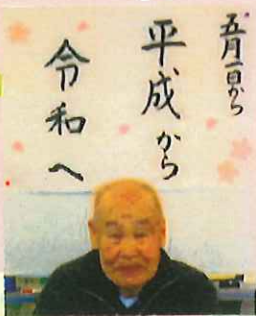 五月一日から
平成から
令和へ